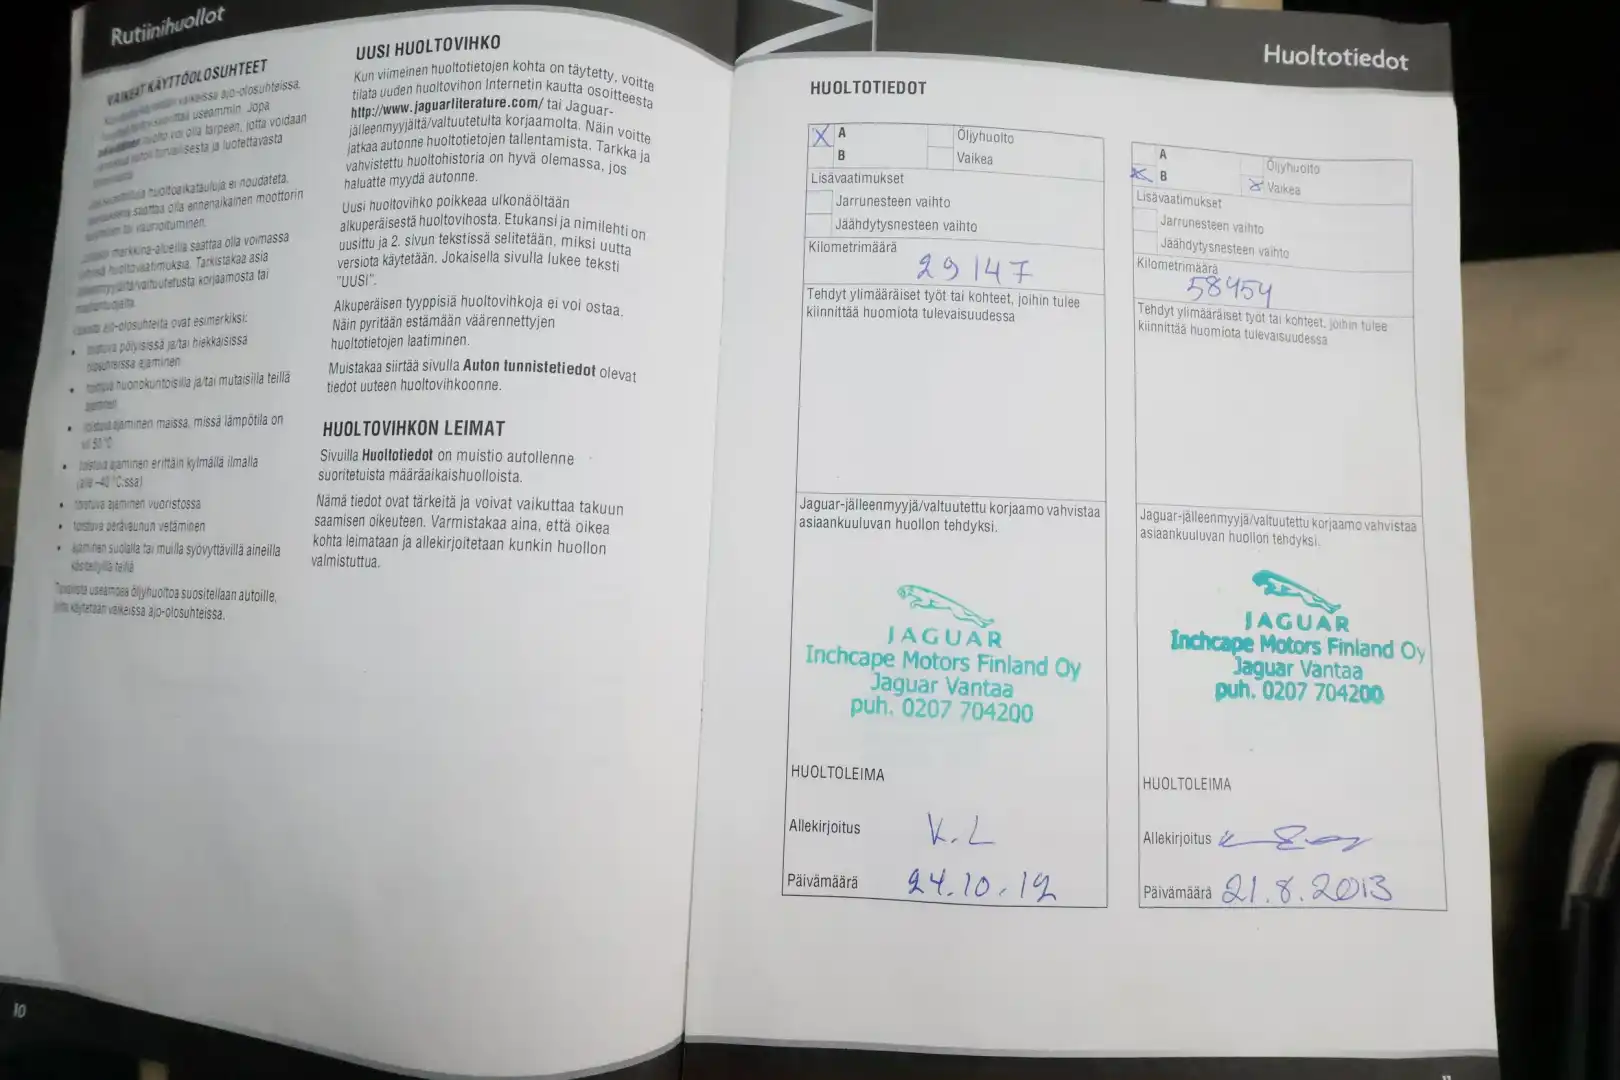 Rutiinihuollot
VAIKEAT KÄYTTÖOLOSUHTEET
vaikeissa ajo-olosuhteissa,
useammin. Jopa
voi olla tarpeen, jotta voidaan
turvallisesta ja luotettavasta
huoltoaikatauluja ei noudateta,
saattaa olla ennenaikainen moottorin
tai vaurioituminen.
markkina-alueilla saattaa olla voimassa
huoltovaatimuksia. Tarkistakaa asia
korjaamosta tai
ajo-olosuhteita ovat esimerkiksi:
• toistuva pölyisissä ja/tai hiekkaisissa
olosuhteissa ajaminen
• toistuva huonokuntoisilla ja/tai mutaisilla teillä
ajaminen
• toistuva ajaminen maissa, missä lämpötila on
yli 50 °C
• toistuva ajaminen erittäin kylmällä ilmalla
(alle –40 °C:ssa)
• toistuva ajaminen vuoristossa
• toistuva perävaunun vetäminen
• ajaminen suolalla tai muilla syövyttävillä aineilla
käsitellyillä teillä
useampaa öljyhuoltoa suositellaan autoille,
joita käytetään vaikeissa ajo-olosuhteissa.
10
UUSI HUOLTOVIHKO
Kun viimeinen huoltotietojen kohta on täytetty, voitte
tilata uuden huoltovihon Internetin kautta osoitteesta
http://www.jaguarliterature.com/ tai Jaguar-
jälleenmyyjältä/valtuutetulta korjaamolta. Näin voitte
jatkaa autonne huoltotietojen tallentamista. Tarkka ja
vahvistettu huoltohistoria on hyvä olemassa, jos
haluatte myydä autonne.
Uusi huoltovihko poikkeaa ulkonäöltään
alkuperäisestä huoltovihosta. Etukansi ja nimilehti on
uusittu ja 2. sivun tekstissä selitetään, miksi uutta
versiota käytetään. Jokaisella sivulla lukee teksti
"UUSI".
Alkuperäisen tyyppisiä huoltovihkoja ei voi ostaa.
Näin pyritään estämään väärennettyjen
huoltotietojen laatiminen.
Muistakaa siirtää sivulla Auton tunnistetiedot olevat
tiedot uuteen huoltovihkoonne.
HUOLTOVIHKON LEIMAT
Sivuilla Huoltotiedot on muistio autollenne
suoritetuista määräaikaishuolloista.
Nämä tiedot ovat tärkeitä ja voivat vaikuttaa takuun
saamisen oikeuteen. Varmistakaa aina, että oikea
kohta leimataan ja allekirjoitetaan kunkin huollon
valmistuttua.
Huoltotiedot
HUOLTOTIEDOT
X A Öljyhuolto
B Vaikea
Lisävaatimukset
Jarrunesteen vaihto
Jäähdytysnesteen vaihto
Kilometrimäärä
29147
Tehdyt ylimääräiset työt tai kohteet, joihin tulee
kiinnittää huomiota tulevaisuudessa
Jaguar-jälleenmyyjä/valtuutettu korjaamo vahvistaa
asiaankuuluvan huollon tehdyksi.
JAGUAR
Inchcape Motors Finland Oy
Jaguar Vantaa
puh. 0207 704200
HUOLTOLEIMA
Allekirjoitus K.L
Päivämäärä 24.10.12
A Öljyhuolto
X B X Vaikea
Lisävaatimukset
Jarrunesteen vaihto
Jäähdytysnesteen vaihto
Kilometrimäärä
58454
Tehdyt ylimääräiset työt tai kohteet, joihin tulee
kiinnittää huomiota tulevaisuudessa
Jaguar-jälleenmyyjä/valtuutettu korjaamo vahvistaa
asiaankuuluvan huollon tehdyksi.
JAGUAR
Inchcape Motors Finland Oy
Jaguar Vantaa
puh. 0207 704200
HUOLTOLEIMA
Allekirjoitus
Päivämäärä 21.8.2013